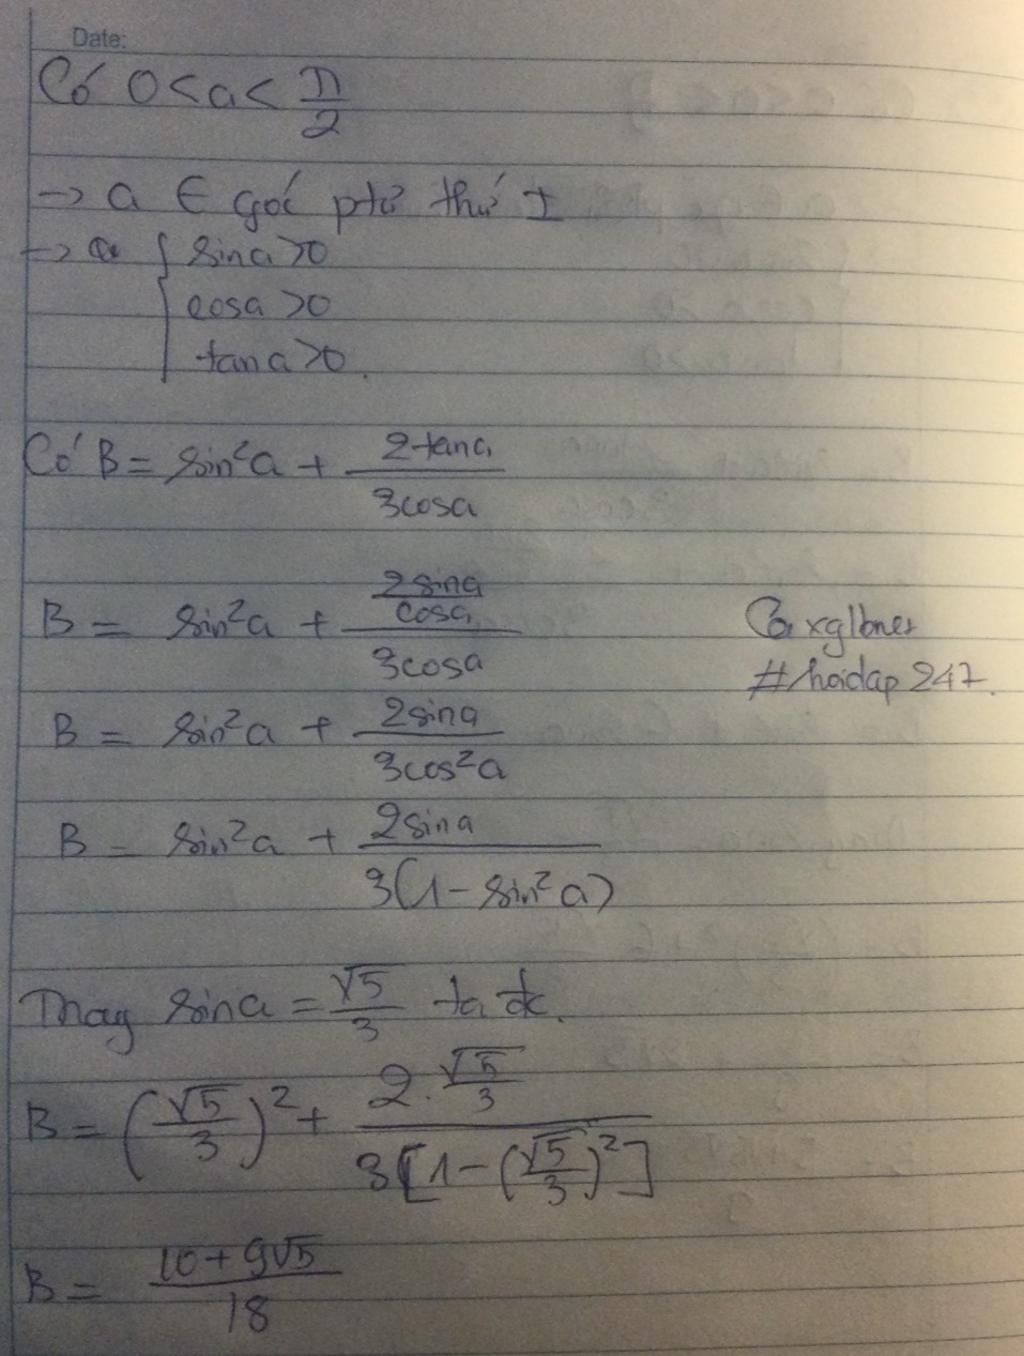 Date:
Có 0 < a < π/2
→ a ∈ góc ptư thứ I
→ { sina > 0
cosa > 0
tana > 0.
Có B = sin²a + 2tana / 3cosa
B = sin²a + (2sina / cosa) / 3cosa
xglbner
#hoidap247.
B = sin²a + 2sina / 3cos²a
B = sin²a + 2sina / 3(1 - sin²a)
Thay sina = √5/3 ta đc.
B = (√5/3)² + 2.√5/3 / 3[1 - (√5/3)²]
B = 10 + 9√5 / 18